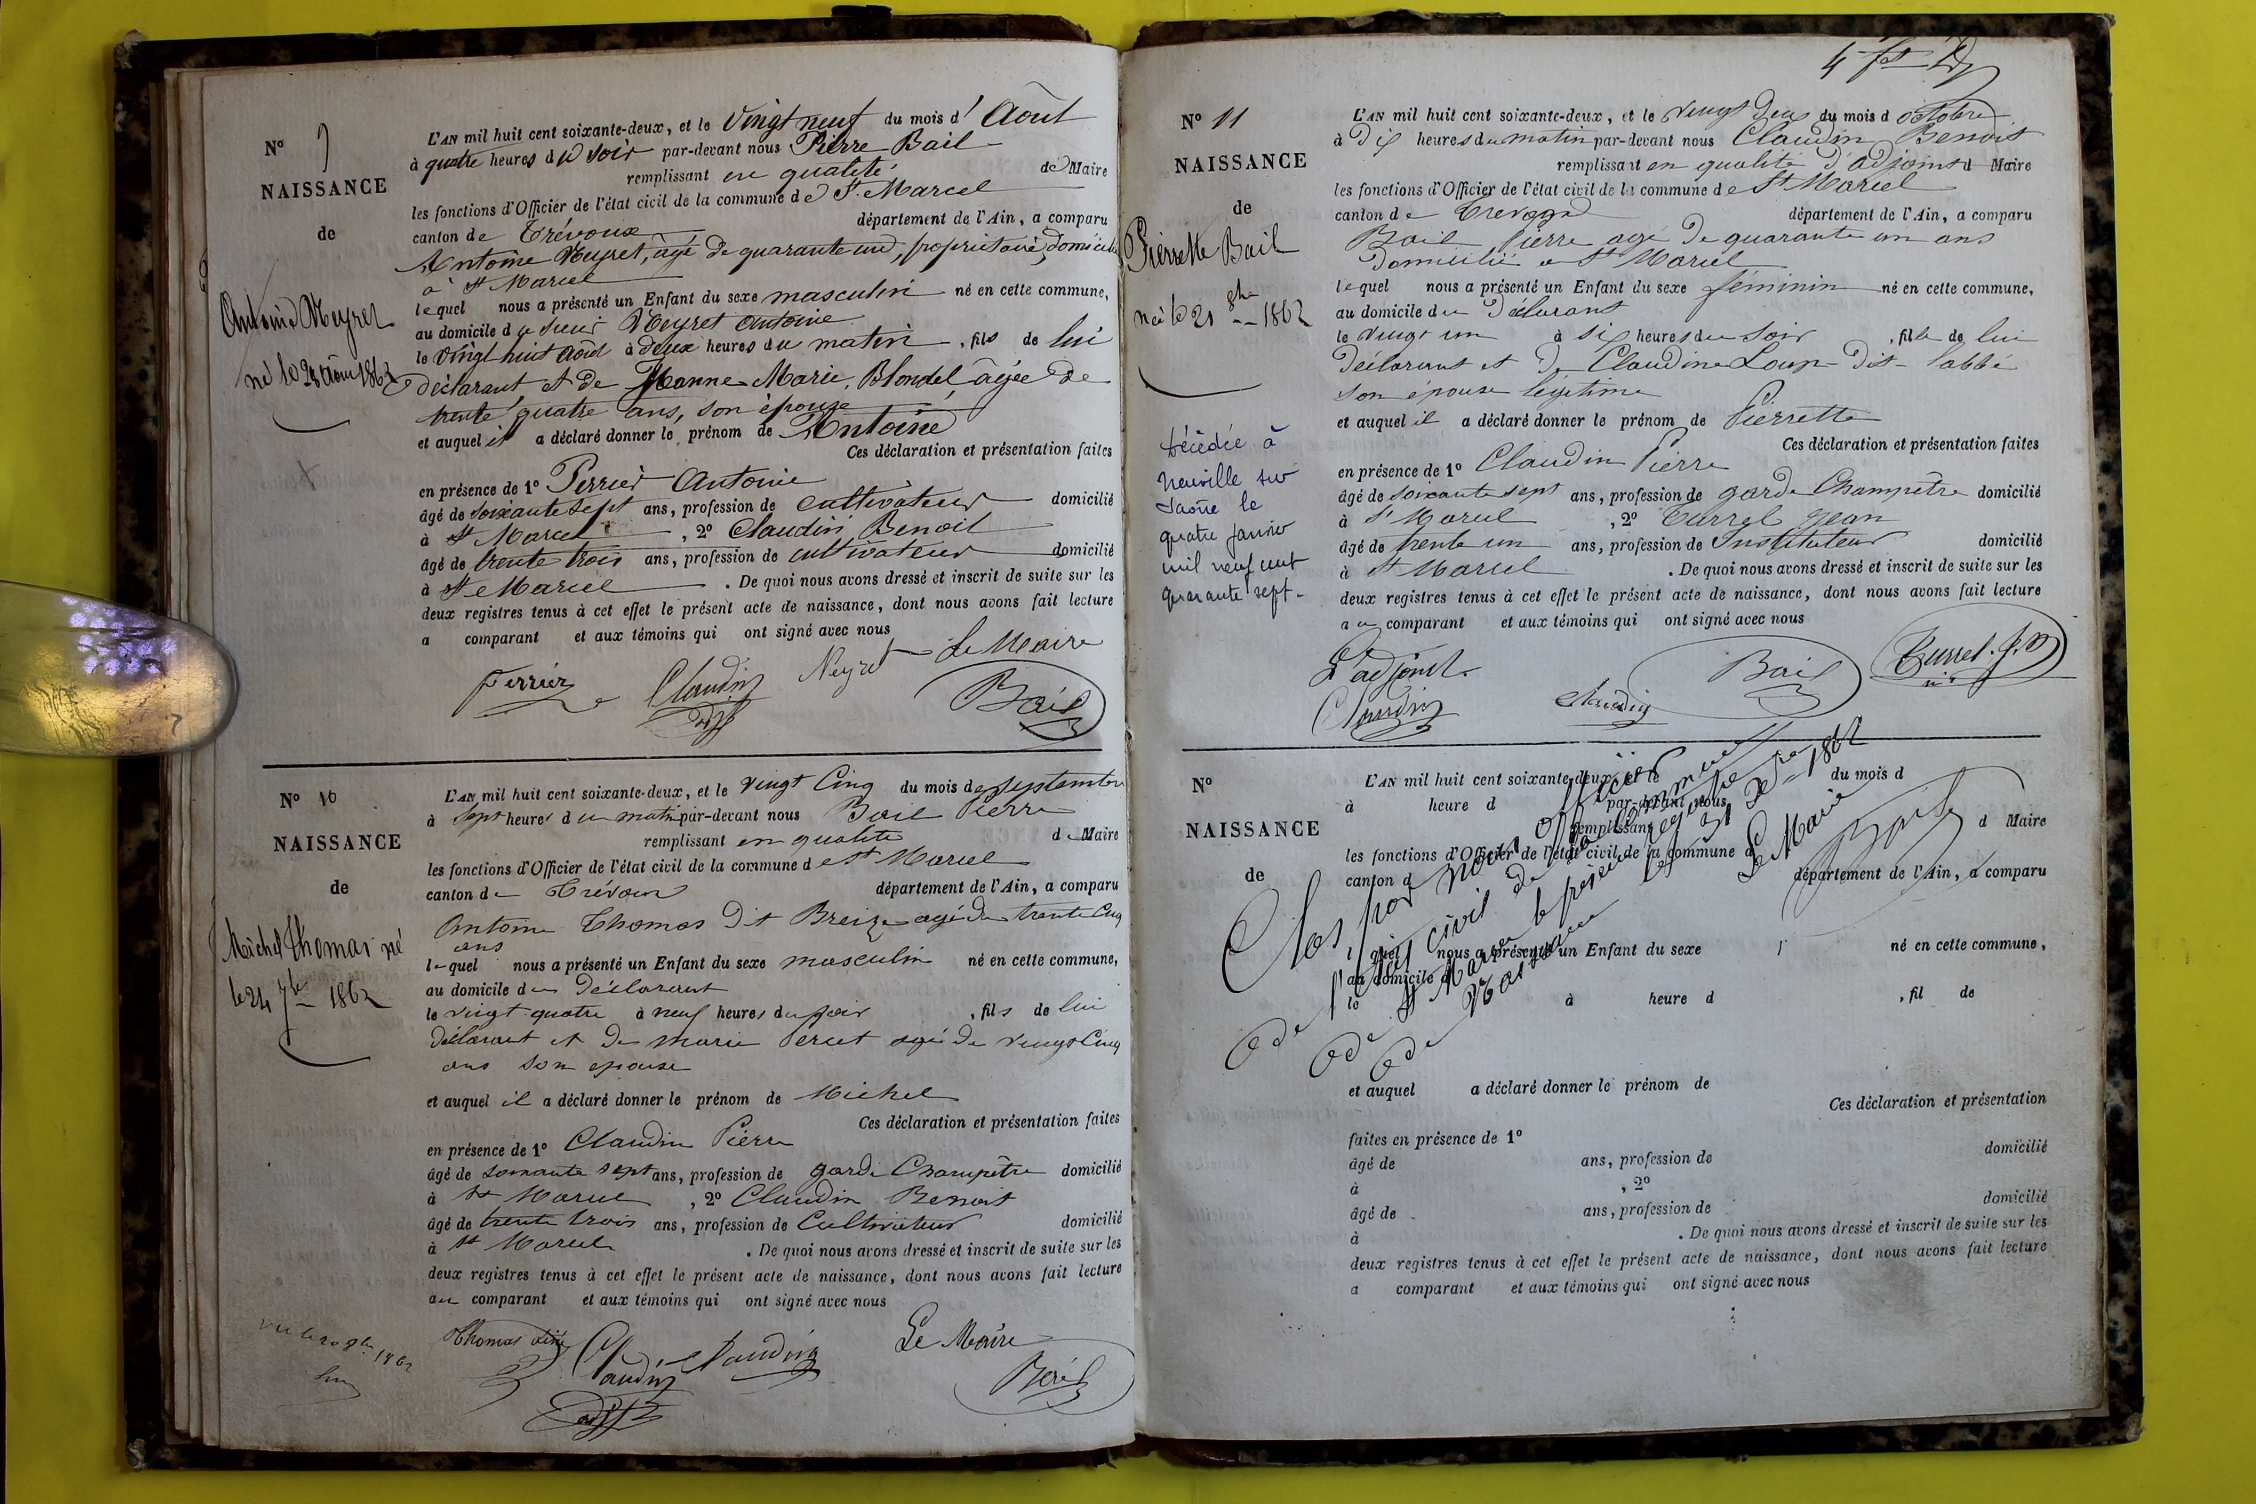 N° 9
NAISSANCE
de
Antoine Neyret
né le 28 Août 1862
L'AN mil huit cent soixante-deux, et le Vingt neuf du mois d' Août
à quatre heures du soir par-devant nous Pierre Bail
remplissant en qualité de Maire
les fonctions d'Officier de l'état civil de la commune de St. Marcel
canton de Trévoux département de l'Ain, a comparu
Antoine Neyret, âgé de quarante une, propriétaire, domicilié
à St Marcel
lequel nous a présenté un Enfant du sexe masculin né en cette commune,
au domicile du sieur Neyret Antoine
le vingt huit août à deux heures du matin , fils de lui
déclarant et de Jeanne Marie Blondel âgée de
trente quatre ans, son épouse
et auquel il a déclaré donner le prénom de Antoine
Ces déclaration et présentation faites
en présence de 1° Perrier Antoine
âgé de soixante sept ans, profession de cultivateur domicilié
à St Marcel , 2° Claudin Benoit
âgé de trente trois ans, profession de cultivateur domicilié
à St Marcel . De quoi nous avons dressé et inscrit de suite sur les
deux registres tenus à cet effet le présent acte de naissance, dont nous avons fait lecture
a comparant et aux témoins qui ont signé avec nous
Le Maire
Perrier Claudin Neyret Bail
N° 10
NAISSANCE
de
Michel Thomas né
le 24 7bre 1862
L'AN mil huit cent soixante-deux, et le vingt Cinq du mois de Septembre
à Sept heures du matin par-devant nous Bail Pierre
remplissant en qualité de Maire
les fonctions d'Officier de l'état civil de la commune de St Marcel
canton de Trévoux département de l'Ain, a comparu
Antoine Thomas Dit Breize agé de trente Cinq
ans
lequel nous a présenté un Enfant du sexe masculin né en cette commune,
au domicile du Déclarant
le vingt quatre à neuf heures du soir , fils de lui
Déclarant et De marie Percet agé De vingt Cinq
ans son epouse
et auquel il a déclaré donner le prénom de Michel
Ces déclaration et présentation faites
en présence de 1° Claudin Pierre
âgé de soixante sept ans, profession de garde Champêtre domicilié
à St Marcel , 2° Claudin Benoit
âgé de trente trois ans, profession de Cultivateur domicilié
à St Marcel . De quoi nous avons dressé et inscrit de suite sur les
deux registres tenus à cet effet le présent acte de naissance, dont nous avons fait lecture
au comparant et aux témoins qui ont signé avec nous
Le Maire
Thomas Claudin Claudin Bail
N° 11
NAISSANCE
de
Pierrette Bail
née le 21 8bre 1862
Décédée à
Neuville sur
Saône le
quatre janvier
mil neuf cent
quarante sept -
L'AN mil huit cent soixante-deux, et le vingt Deux du mois d octobre
à Dix heures du matin par-devant nous Claudin Benoit
remplissant en qualité d'adjoint d Maire
les fonctions d'Officier de l'état civil de la commune de St Marcel
canton de Trevoux département de l'Ain, a comparu
Bail Pierre agé De quarante un ans
Domicilié a St Marcel
lequel nous a présenté un Enfant du sexe féminin né en cette commune,
au domicile du Déclarant
le vingt un à six heures du soir , fille de lui
Déclarant et De Claudine Loup Dit labbé
son épouse légitime
et auquel il a déclaré donner le prénom de Pierrette
Ces déclaration et présentation faites
en présence de 1° Claudin Pierre
âgé de soixante sept ans, profession de garde Champêtre domicilié
à St Marcel , 2° Turrel Jean
âgé de trente un ans, profession de Instituteur domicilié
à St Marcel . De quoi nous avons dressé et inscrit de suite sur les
deux registres tenus à cet effet le présent acte de naissance, dont nous avons fait lecture
au comparant et aux témoins qui ont signé avec nous
L'adjoint
Claudin Claudin Bail Turrel
N°
NAISSANCE
de
L'AN mil huit cent soixante-deux, et le du mois d
à heure d par-devant nous
remplissant d Maire
les fonctions d'Officier de l'état civil de la commune d
canton d département de l'Ain, a comparu
l quel nous a présenté un Enfant du sexe né en cette commune,
au domicile d
le à heure d , fil de
et auquel a déclaré donner le prénom de
Ces déclaration et présentation
faites en présence de 1°
âgé de ans, profession de domicilié
à , 2°
âgé de ans, profession de domicilié
à . De quoi nous avons dressé et inscrit de suite sur les
deux registres tenus à cet effet le présent acte de naissance, dont nous avons fait lecture
a comparant et aux témoins qui ont signé avec nous
Clos par nous officier
de l'état civil de la commune
de St Marcel le présent registre
de Naissance le 31 Xbre 1862
Le Maire
Bail